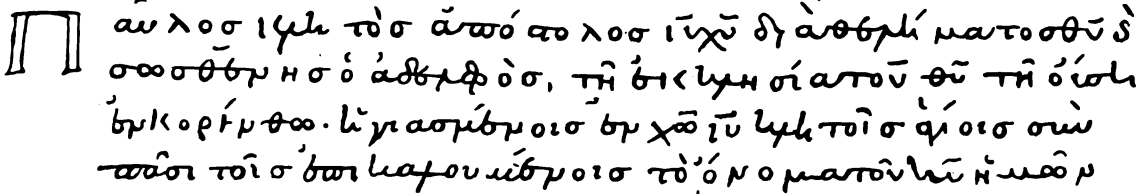 Παῦλος κλητὸς ἀπόστολος ι̅υ̅ χ̅υ̅ διὰ θελήματος θ̅υ̅ κ̀
σωσθένης ὁ ἀδελφὸς, τῆ ἐκκλησία τοῦ θ̅υ̅ τῆ οὔση
ἐν κορίνθω· ἡγιασμένοις ἐν χ̅ω̅ ι̅υ̅ κλητοῖς ἁγίοις σὺν
πᾶσι τοῖς ἐπικαλουμένοις τὸ ὄνομα τοῦ κ̅υ̅ ἡμῶν